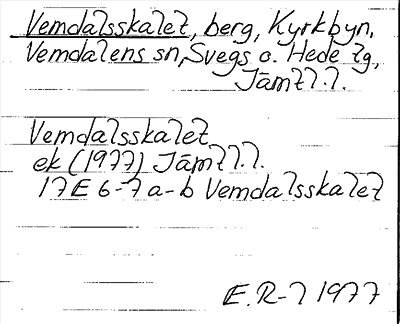 Vemdalsskalet, berg, Kyrkbyn,
Vemdalens sn, Svegs o. Hede tg,
Jämtl.l.
Vemdalsskalet
ek (1977) Jämtl.l.
17E 6-7 a-b Vemdalsskalet
E.R-l 1977